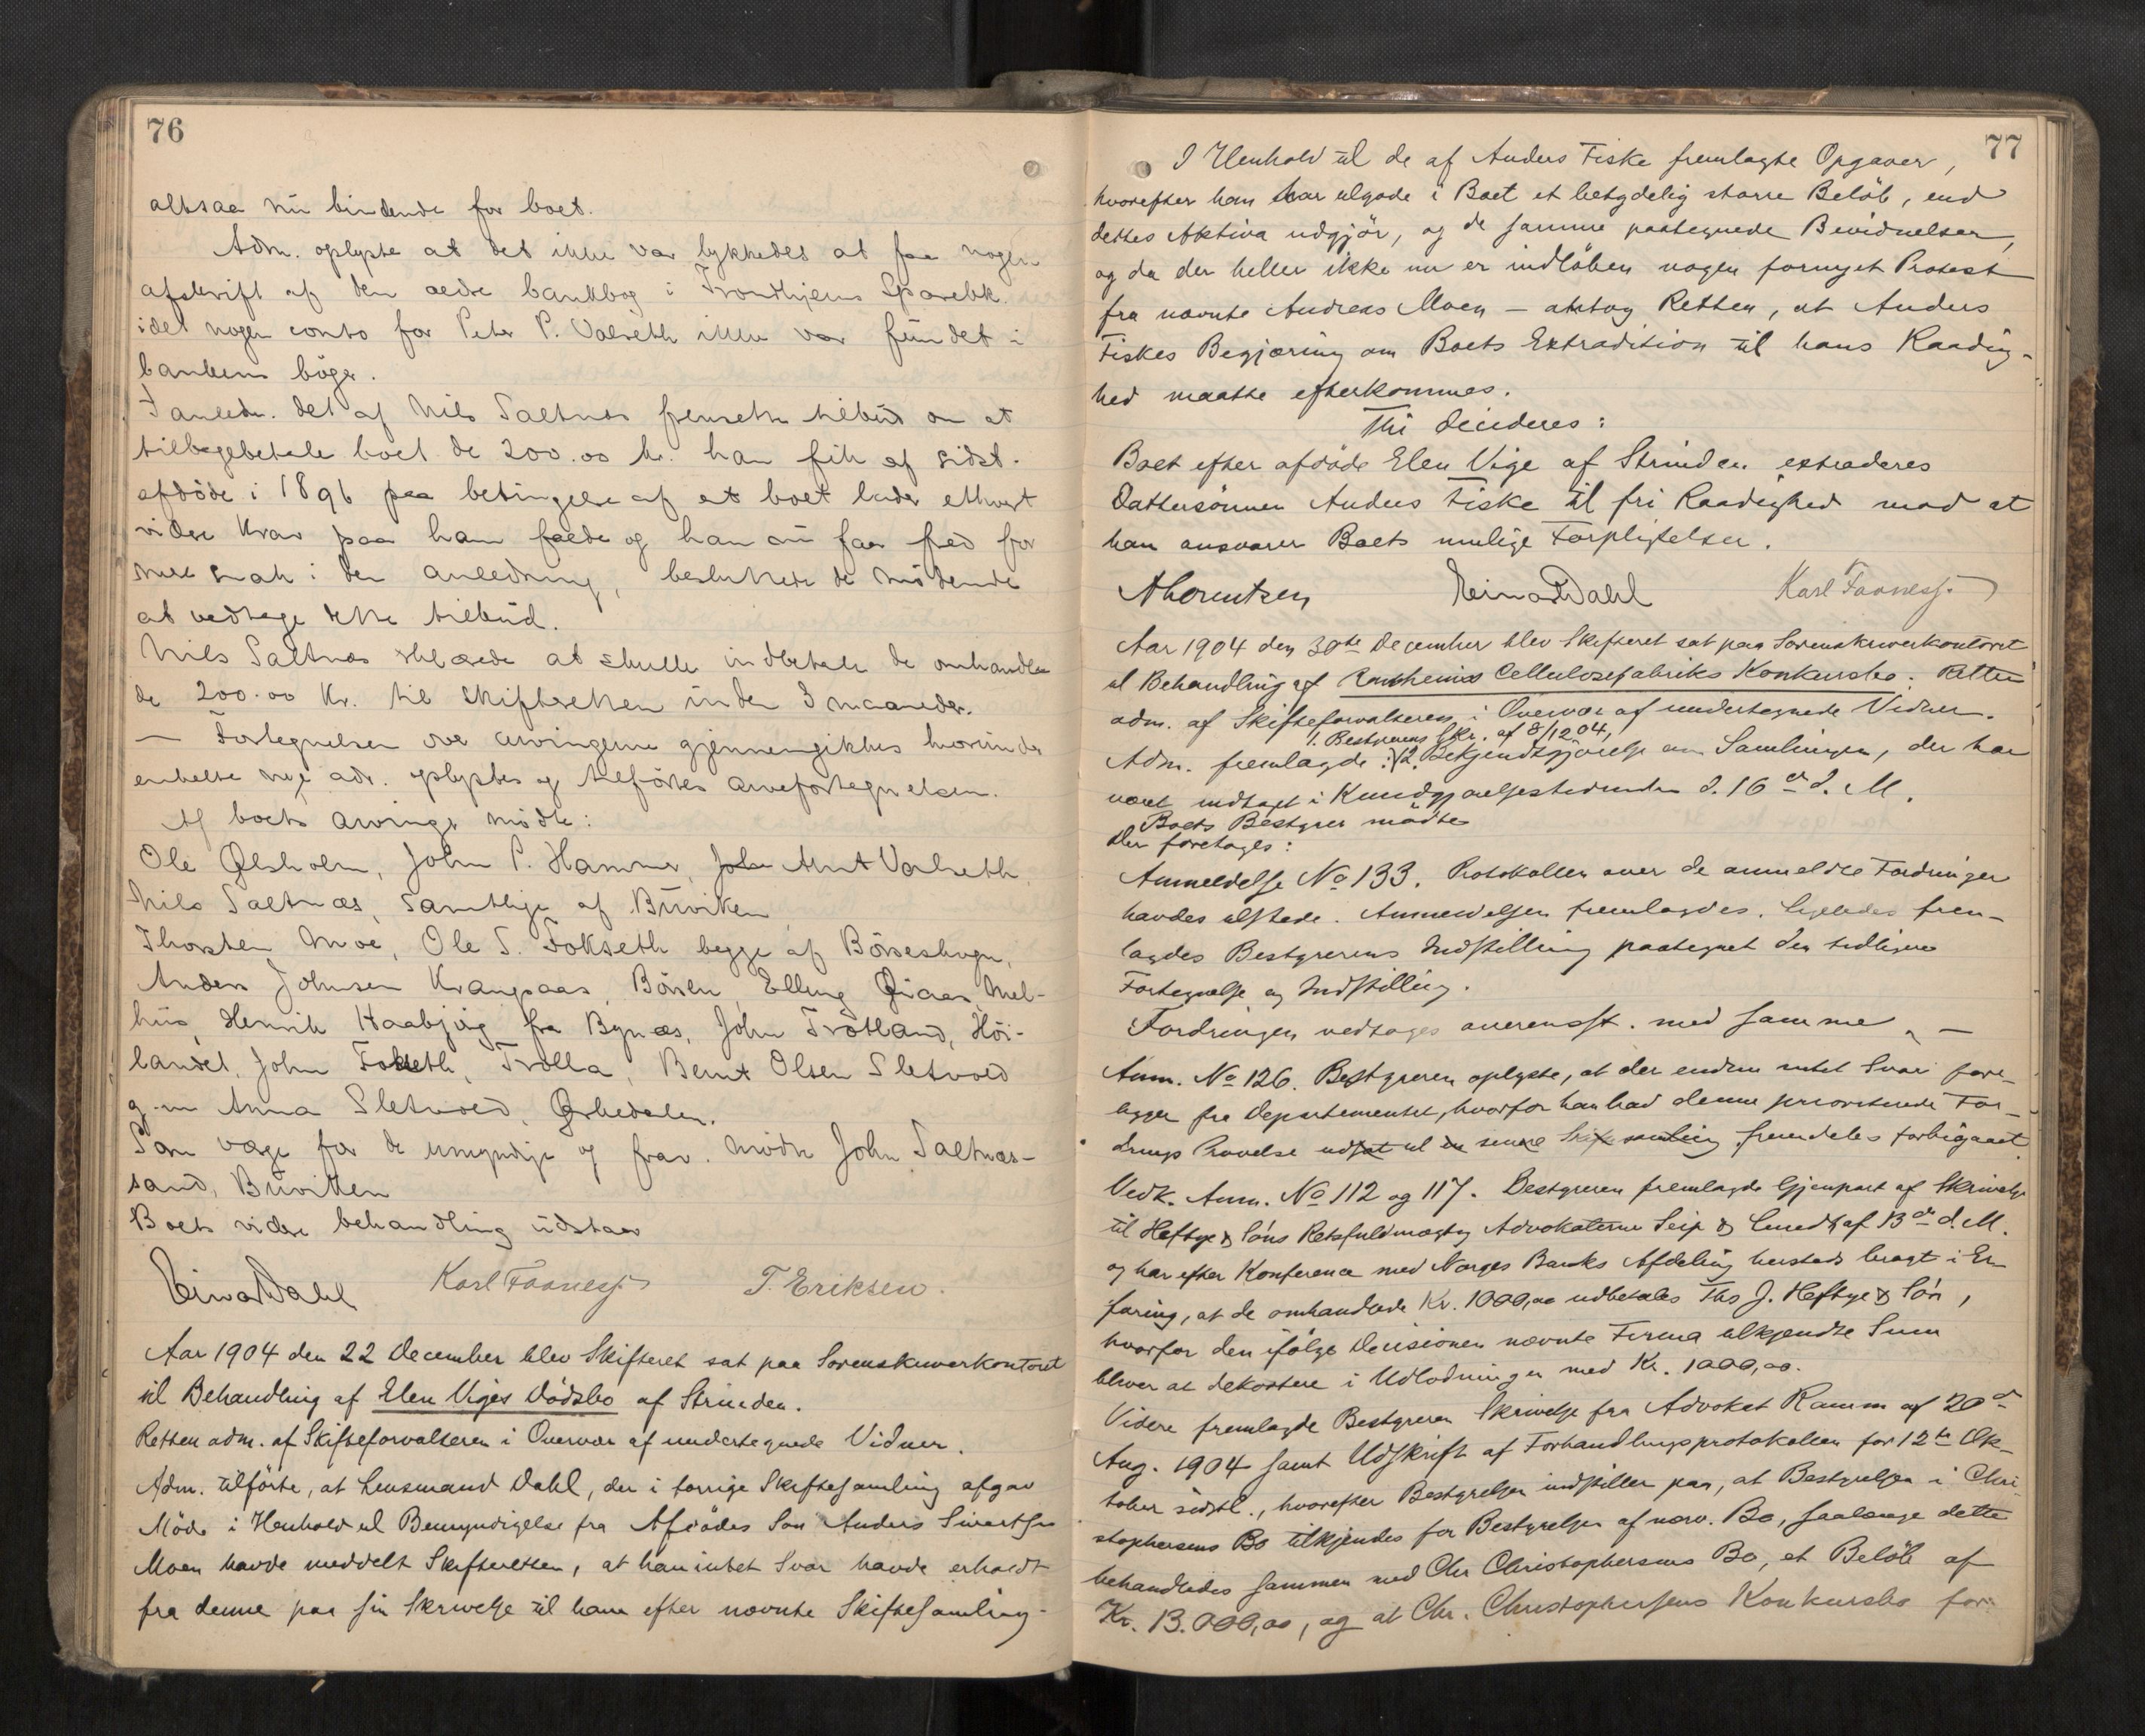 76
altsaa nu bindende for boet.
Adm. oplyste at det ikke var lykkedes at faa nogen
afskrift af den ældre bankbog i Trondhjems Sparebk.
idet nogen conto for Peter P. Valseth ikke var fundet i
bankens böger.
I anledn. det af Nils Saltnæs fremsatte tilbud om at
tilbagebetale boet de 200.00 kr. han fik af sidst-
afdöde i 1896 paa betingelse af at boet lader ethvert
videre krav paa ham falde og han nu faar fred for
mere snak i den anledning, besluttede de mödende
at vedtage dette tilbud.
Nils Saltnæs erklærede at skulle indbetale de omhandle
de 200.00 Kr. til skifteretten inden 3 maaneder.
— Fortegnelsen over arvingerne gjennemgikkes hvorunder
enkelte nye adr. oplystes og tilförtes arvefortegnelsen.
Af boets arvinger mödte:
Ole Ølsholm, John P. Hammer, John Arnt Valseth,
Nils Saltnæs, samtlige af Buviken
Thorsten Moe, Ole S. Fokseth begge af Börseskogn,
Anders Johnsen Krangsaas, Börsen, Elling Øiaas, Mel-
hus, Henrik Haabjörg fra Bynæs, John Trötland, Höi-
landet, John Fokseth, Trolla, Bernt Olsen Sletvold
g-m Anna Sletvold, Ørkedalen.
Som værge for de umyndige og frav. mödte John Saltnæs-
sand, Buvikken
Boets videre behandling udstaar
Einar Dahl Karl Faanes T. Eriksen.
Aar 1904 den 22 December blev Skifteret sat paa Sorenskriverkontoret
til Behandling af Elen Viges Dödsbo af Strinden.
Retten adm. af Skifteforvalteren i Overvær af undertegnede Vidner.
Adm. tilförte, at Lensmand Dahl, der i forrige Skiftesamling afgav
Möde i Henhold til Bemyndigelse fra Afdödes Sön Anders Sivertsen
Moen havde meddelt Skifteretten, at han intet Svar havde erholdt
fra denne paa sin Skrivelse til ham efter nævnte Skiftesamling-
77
I Henhold til de af Anders Fiske fremlagte Opgaver,
hvorefter han har tilgode i Boet et betydelig större Belöb, end
dettes Aktiva udgjör, og de samme paategnede Bevidnelser,
og da der heller ikke nu er indlöben nogen fornyet Protest
fra nævnte Andreas Moen – antog Retten, at Anders
Fiskes Begjæring om Boets Extradition til hans Raadig-
hed maatte efterkommes.
Thi decideres:
Boet efter afdöde Elen Vige af Strinden extraderes
Dattersönnen Anders Fiske til fri Raadighed mod at
han ansvarer Boets mulige Forpligtelser.
A Lorentzen Einar Dahl Karl Faanes
Aar 1904 den 30te December blev Skifteret sat paa Sorenskriverkontoret
til Behandling af Ranheims Cellulosefabriks Konkursbo. Retten
adm. af Skifteforvalteren i Overvær af undertegnede Vidner.
1. Bestyrerens Skr. af 8/12 04,
Adm. fremlagde: 2. Bekjendtgjörelse om Samlingen, der har
været indtaget i Kundgjörelsestidenden d. 16de d. M.
Boets Bestyrer mödte
Der foretoges:
Anmeldelse No 133. Protokollen over de anmeldte Fordringer
havdes tilstede. Anmeldelsen fremlagdes. Ligeledes frem-
lagdes Bestyrerens Indstilling paategnet den tidligere
Fortegnelse og Indstilling.
Fordringen vedtoges overensst. med samme. —
Anm. No 126. Bestyreren oplyste, at der endnu intet Svar fore-
ligger fra Departementet, hvorfor han bad denne prioriterede For-
drings Prövelse udsat til en senere Skiftesamling fremdeles forbigaaet.
Vedk. Anm. No 112 og 117. Bestyreren fremlagde Gjenpart af Skrivelse
til Heftye & Söns Retsfuldmægtig Advokaterne Seip & af 13de d. M.
og har efter Konference med Norges Banks Afdeling hersteds bragt i Er-
faring, at de omhandlede Kr. 1000,00 udbetales Ths J. Heftye & Sön,
hvorfor den ifölge Decisionen nævnte Firma tilkjendte Sum
bliver at dekortere i Udlodningen med Kr. 1000,00.
Videre fremlagde Bestyreren Skrivelse fra Advokat Ramm af 20de
Aug. 1904 samt Udskrift af Forhandlingsprotokollen for 12te Ok-
tober sidstl., hvorefter Bestyrelsen indstiller paa, at Bestyrelsen i Chri-
stophersens Bo tilkjendes for Bestyrelsen af nærv. Bo, saalænge dette
behandledes sammen med Chr Christophersens Bo, et Belöb af
Kr. 13.000,00, og at Chr. Christophersens Konkursbo for